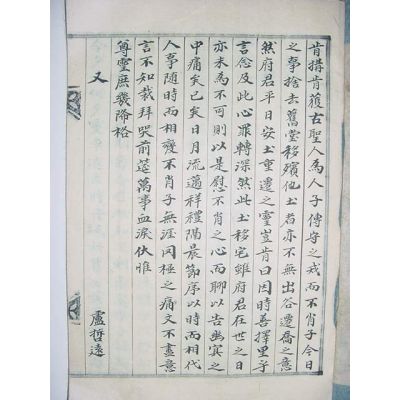 肯搆肯穫古聖人為人子傳守之戒而不肖子今日
之事捨去舊堂移殯他土者亦不無出谷遷喬之意
然府君平日安土重遷之靈豈肯曰因時善擇里乎
言念及此心罪轉深然此土移宅雖府君在世之日
亦未為不可則以是慰不肖之心而聊以告幽冥之
中痛矣已矣日月流邁祥禮隔晨節序以時而相代
人事隨時而相變不肖子無涯罔極之痛文不盡意
言不知裁拜哭前筵萬事血淚伏惟
尊靈庶幾降格
又
盧哲遠